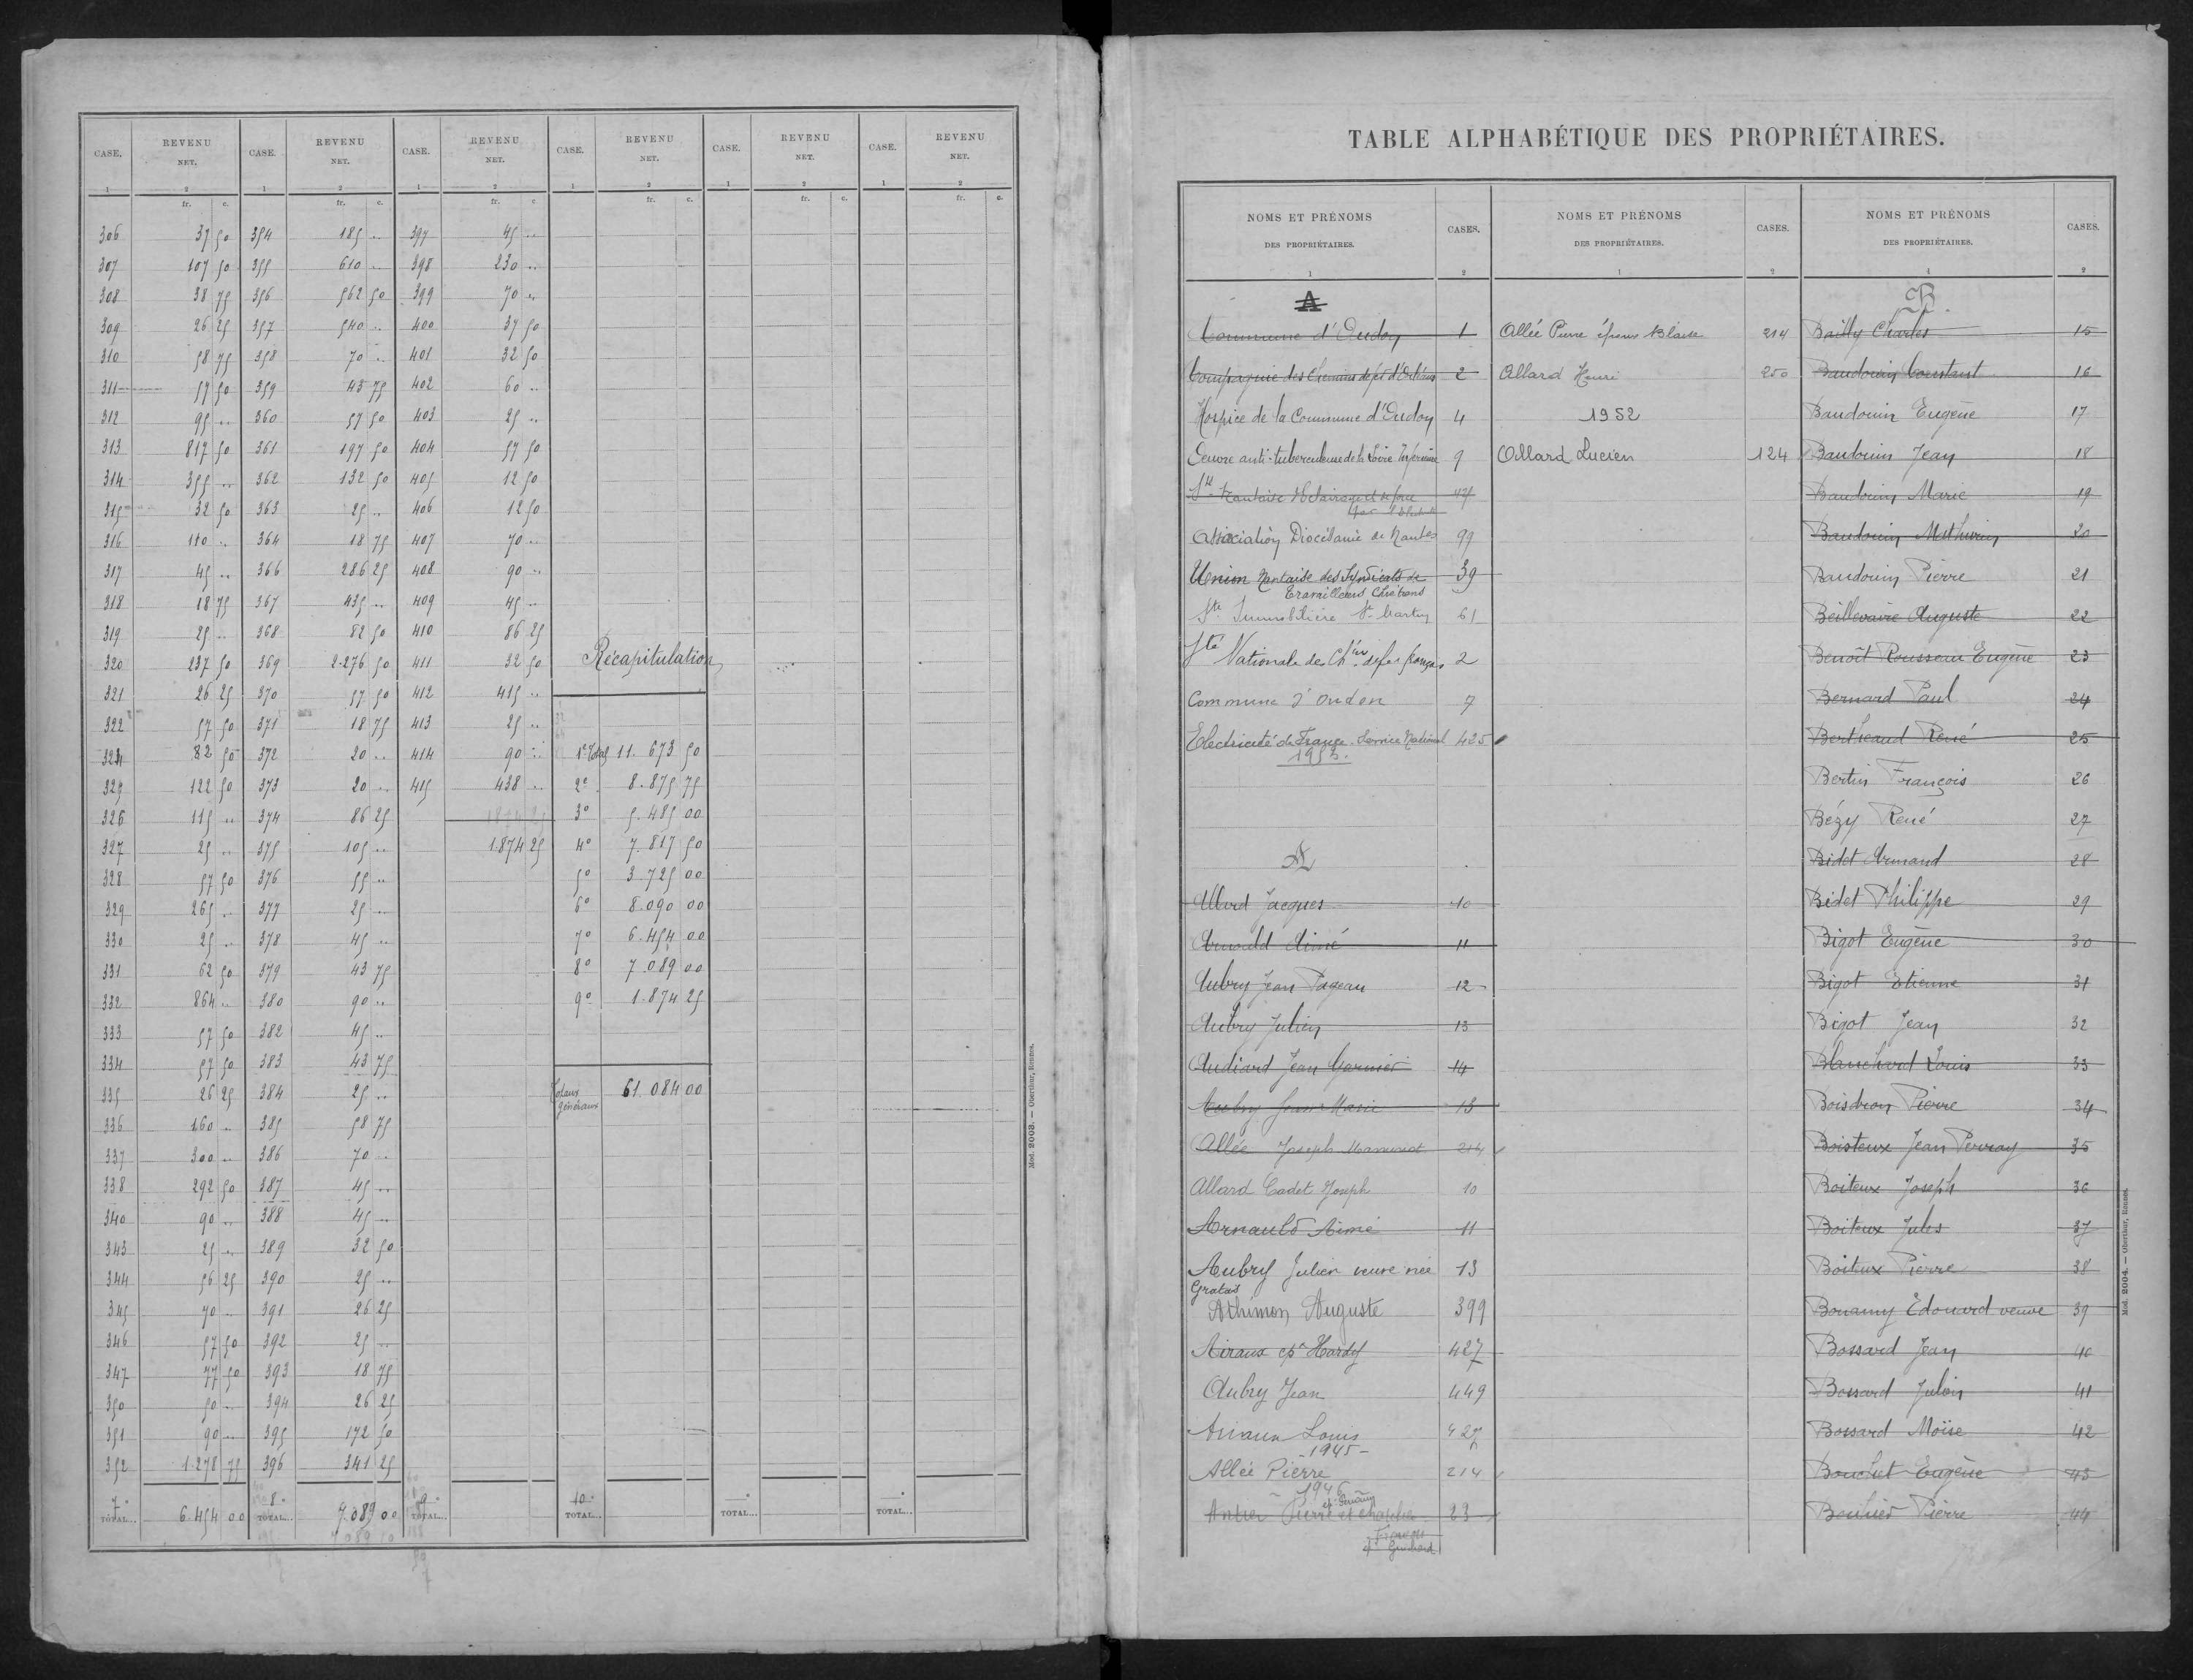 CASE. REVENU NET. CASE. REVENU NET. CASE. REVENU NET. CASE. REVENU NET. CASE. REVENU NET. CASE. REVENU NET.
1 2 1 2 1 2 1 2 1 2 1 2
fr. c. fr. c. fr. c. fr. c. fr. c. fr. c.
306 37 50 354 185 .. 397 45 ..
307 107 50 355 610 .. 398 230 ..
308 38 75 356 562 50 399 70 ..
309 26 25 357 540 .. 400 37 50
310 58 75 358 70 .. 401 32 50
311 57 50 359 43 75 402 60 ..
312 95 .. 360 57 50 403 25 ..
313 817 50 361 197 50 404 57 50
314 355 .. 362 132 50 405 12 50
315 32 50 363 25 .. 406 12 50
316 110 .. 364 18 75 407 70 ..
317 45 .. 366 286 25 408 90 ..
318 18 75 367 435 .. 409 45 ..
319 25 .. 368 82 50 410 86 25
320 237 50 369 2.276 50 411 32 50 Récapitulation
321 26 25 370 57 50 412 415 ..
322 57 50 371 18 75 413 25 ..
324 82 50 372 20 .. 414 90 .. 1e Total 11.673 50
325 122 50 373 20 .. 415 438 .. 2e 8.875 75
326 115 .. 374 86 25 3o 5.485 00
327 25 .. 375 105 .. 1.874 25 4o 7.817 50
328 57 50 376 55 .. 5o 3.725 00
329 265 .. 377 25 .. 6o 8.090 00
330 25 .. 378 45 .. 7o 6.454 00
331 62 50 379 43 75 8o 7.089 00
332 864 .. 380 90 .. 9o 1.874 25
333 57 50 382 45 ..
334 57 50 383 43 75
335 26 25 384 25 .. Totaux généraux 61.084 00
336 160 .. 385 58 75
337 300 .. 386 70 ..
338 292 50 387 45 ..
340 90 .. 388 45 ..
343 25 .. 389 32 50
344 56 25 390 25 ..
345 70 .. 391 26 25
346 57 50 392 25 ..
347 77 50 393 18 75
350 50 .. 394 26 25
351 90 .. 395 172 50
352 1.278 75 396 341 25
7e TOTAL... 6.454 00 8e TOTAL... 7.089 00 9e TOTAL... 10e TOTAL... TOTAL... TOTAL...
Mod. 2003. — Oberthur, Rennes.
TABLE ALPHABÉTIQUE DES PROPRIÉTAIRES.
NOMS ET PRÉNOMS DES PROPRIÉTAIRES. CASES. NOMS ET PRÉNOMS DES PROPRIÉTAIRES. CASES. NOMS ET PRÉNOMS DES PROPRIÉTAIRES. CASES.
1 2 1 2 1 2
A
Commune d'Oudon 1
Compagnie des Chemins de fer d'Orléans 2
Hospice de la Commune d'Oudon 4
Oeuvre anti-tuberculeuse de la Loire Inférieure 9
Sté Nantaise d'Eclairage et de force 47
Association Diocésaine de Nantes 99
Union Nantaise des Syndicats de 39
Travailleurs Chrétiens
Sté Immobilière St Martin 61
Sté Nationale des Chins de fer français 2
Commune d'Oudon 7
Electricité de France. Service National 425
1953.
A
Allard Jacques 10
Arnauld Aimé 11
Aubry Jean Pageau 12
Aubry Julien 13
Audiard Jean Garnier 14
Aubry Jean Marie 13
Allée Joseph 214
Allard Cadet Joseph 10
Arnauld Aimé 11
Aubry Julien veuve née 13
Gratas
Athimon Auguste 399
Airaux ép Hardy 427
Aubry Jean 449
Louis 427
-1945-
Allée Pierre 214
1946
Antier Pierre et 23
Guichard
Allée Pierre époux Blaise 214
Allard Henri 250
1952
Allard Lucien 124
B.
Bailly Charles 15
Baudouin Constant 16
Baudouin Eugène 17
Baudouin Jean 18
Baudouin Marie 19
Baudouin Mathurin 20
Baudouin Pierre 21
Beillevaire Auguste 22
Benoît Rousseau Eugène 23
Bernard Paul 24
Bertheaud René 25
Bertin François 26
Bézy René 27
Bidet Armand 28
Bidet Philippe 29
Bigot Eugène 30
Bigot Etienne 31
Bigot Jean 32
Blanchard Louis 33
Boisdron Pierre 34
Boisteux Jean Perray 35
Boiteux Joseph 36
Boiteux Jules 37
Boiteux Pierre 38
Bonamy Edouard veuve 39
Bossard Jean 40
Bossard Julien 41
Bossard Moïse 42
Bouchet Eugène 43
Bouhier Pierre 44
Mod. 2004. — Oberthur, Rennes.